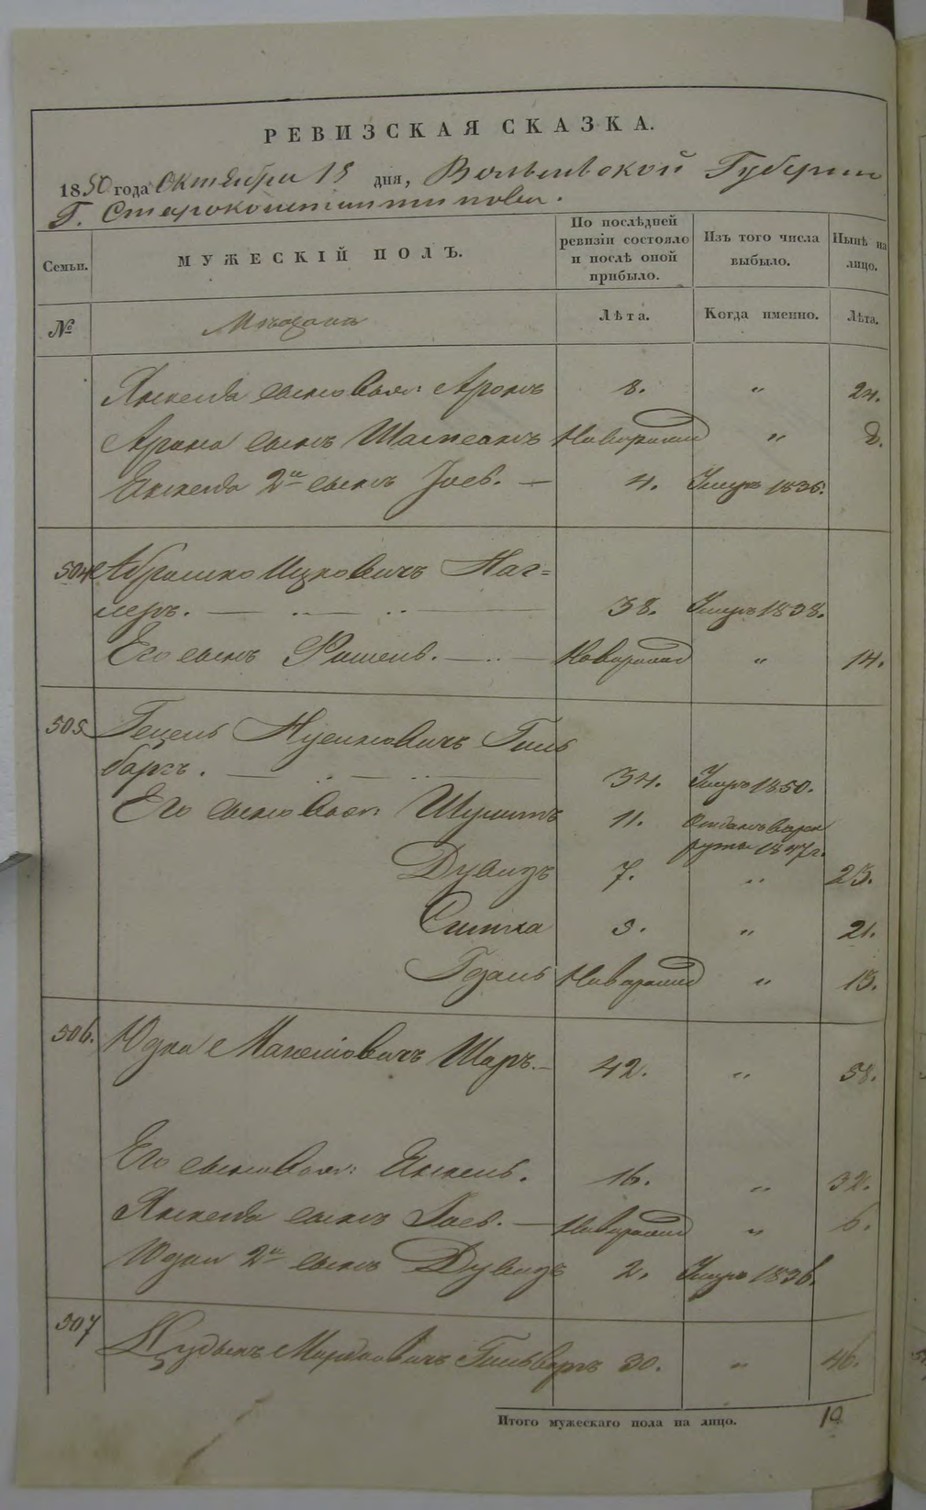 РЕВИЗСКАЯ СКАЗКА.
1850 года Октября 15 дня, Волынской Губернии
Г. Староконстантинова.
Семьи. МУЖЕСКІЙ ПОЛЪ. По послѣдней ревизіи состояло и послѣ оной прибыло. Изъ того числа выбыло. Нынѣ на лицо.
№ Мѣщанъ Лѣта. Когда именно. Лѣта.
Янкеля сыновья: Аронъ 8. " 24.
Арона сынъ новорожд " 8.
Янкеля 2й сынъ Іос. — 4. Умеръ 1836.
504 Абрамко Ицковичъ Наг=
леръ. — 38. Умеръ 1838.
Его сынъ Фишель. — новорожд " 14.
505 Гецель Нусимовичъ Гиль
баргъ. — 34. Умеръ 1850.
Его сыновья: 11. Отданъ въ рек
руты 1847 г.
Дувидъ 7. " 23.
Симха 5. " 21.
новорожд " 15.
506. Юдка Мошковичъ Шаръ. — 42. " 58.
Его сыновья: Янкель. 16. " 32.
Янкеля сынъ — новорожд " 6.
Юдки 2й сынъ Дувидъ 2. Умеръ 1836.
507 Мордковичъ Гильбаргъ 30. " 46.
Итого мужескаго пола на лицо. 10